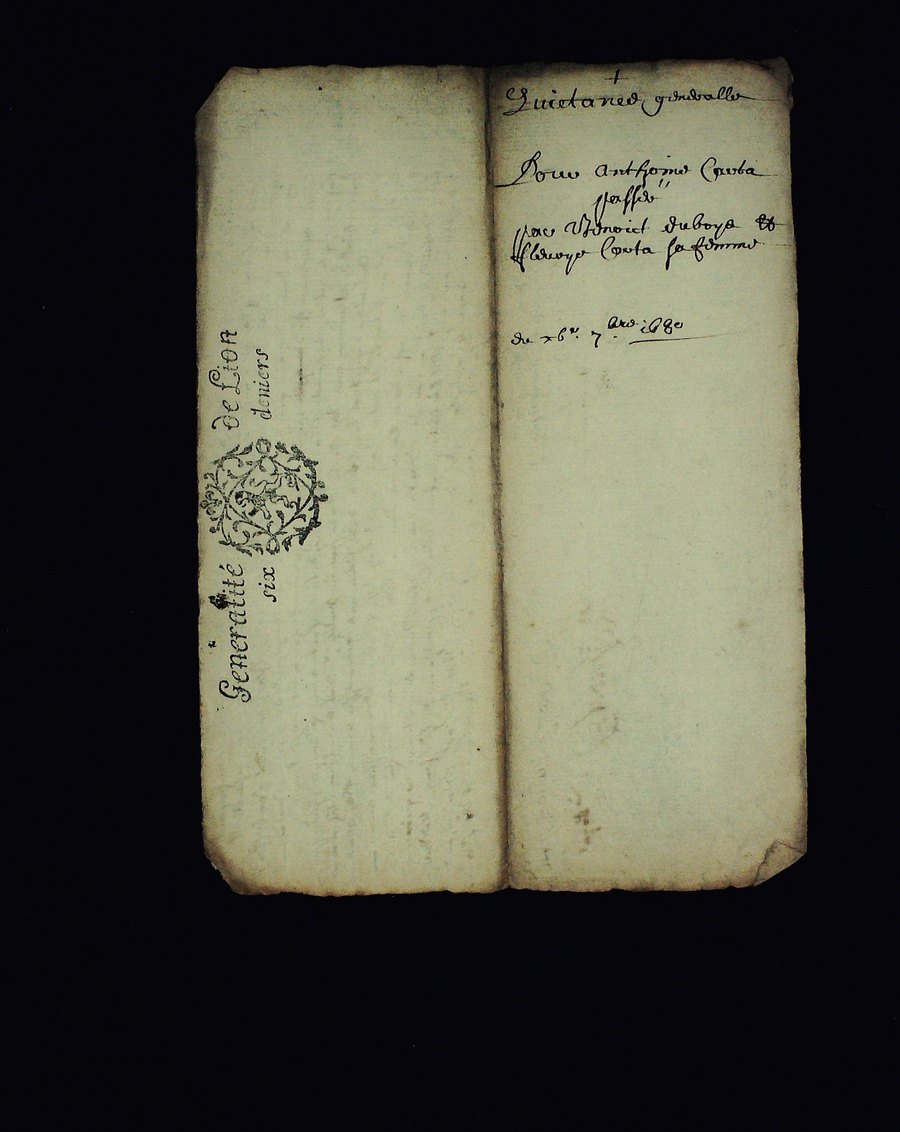 Generalité de Lion
six deniers
+
Quictance generalle
Pour Anthoine Corta
passée
par Benoict duboys et
fleurye Corta sa femme
du 26e. 7bre. 1680